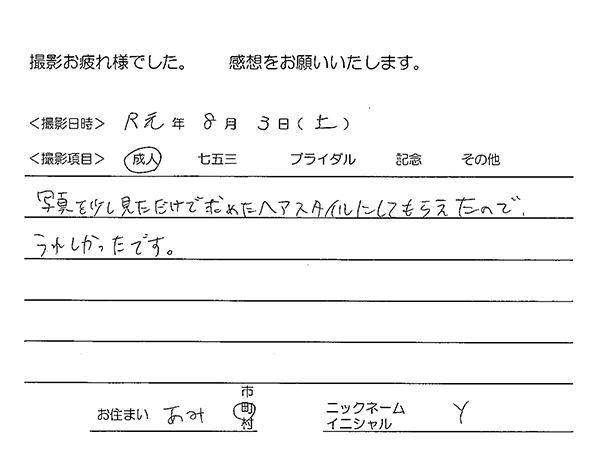 撮影お疲れ様でした。 感想をお願いいたします。
<撮影日時> R元年 8月 3日(土)
<撮影項目> 成人 七五三 ブライダル 記念 その他
写真を少し見ただけで求めたヘアスタイルにしてもらえたので、
うれしかったです。
お住まい あみ 市町村 ニックネーム イニシャル Y